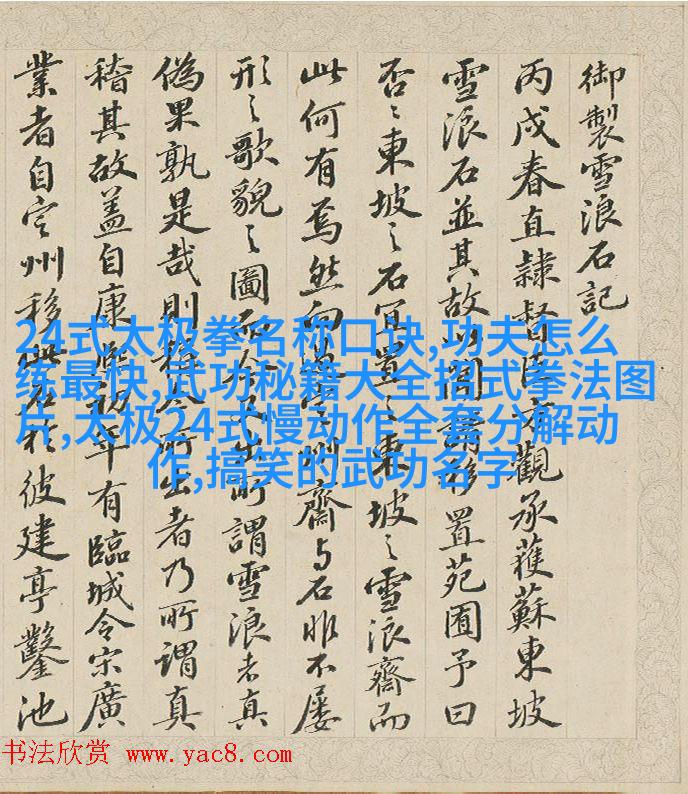 御製雪浪石記
丙戌春直隸督臣方觀承獲蘇東坡
雪浪石並其故以圖請移置苑囿予曰
否〻東坡〻石宜置〻東坡〻雪浪齋而
此何有焉然向州齋与石非不屡
形〻歌貌〻圖而今又出所謂雪浪者真
偽果孰是哉則今所出者乃所謂真
稽其故盖自康熙初年有臨城令宋廣
業者自定州移此石於彼建亭鑿池
24式太极拳名称口诀,功夫怎么
练最快,武功秘籍大全招式拳法图
片,太极24式慢动作全套分解动
作,搞笑的武功名字
书法欣赏 www.yac8.com